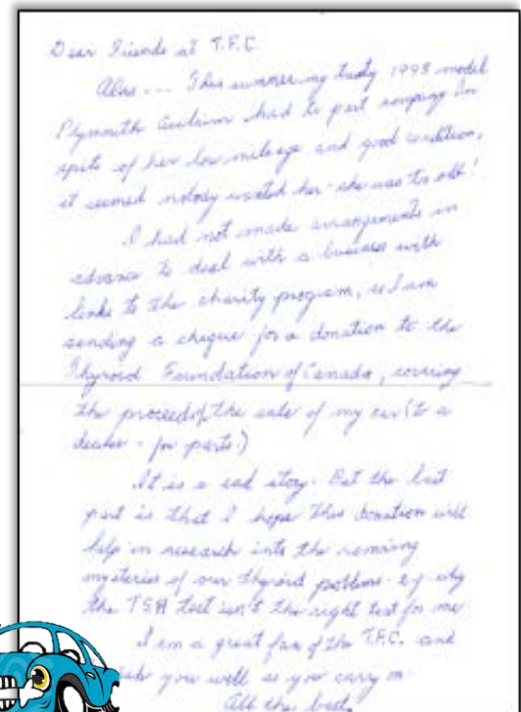 Dear Friends at T.F.C.
Alas --- This summer my trusty 1993 model
Plymouth had to part company. In
spite of her low mileage and good condition,
it seemed nobody wanted her - she was too old!
I had not made arrangements in
advance to deal with a business with
links to the charity program, so I am
sending a cheque for a donation to the
Thyroid Foundation of Canada, covering
the proceeds of the sale of my car (to a
dealer - for parts!)
It is a sad story. But the best
part is that I hope this donation will
help in research into the remaining
mysteries of our thyroid problems - e.g. why
the TSH test isn't the right test for me.
I am a great fan of the T.F.C. and
you well as you carry on.
All the best,